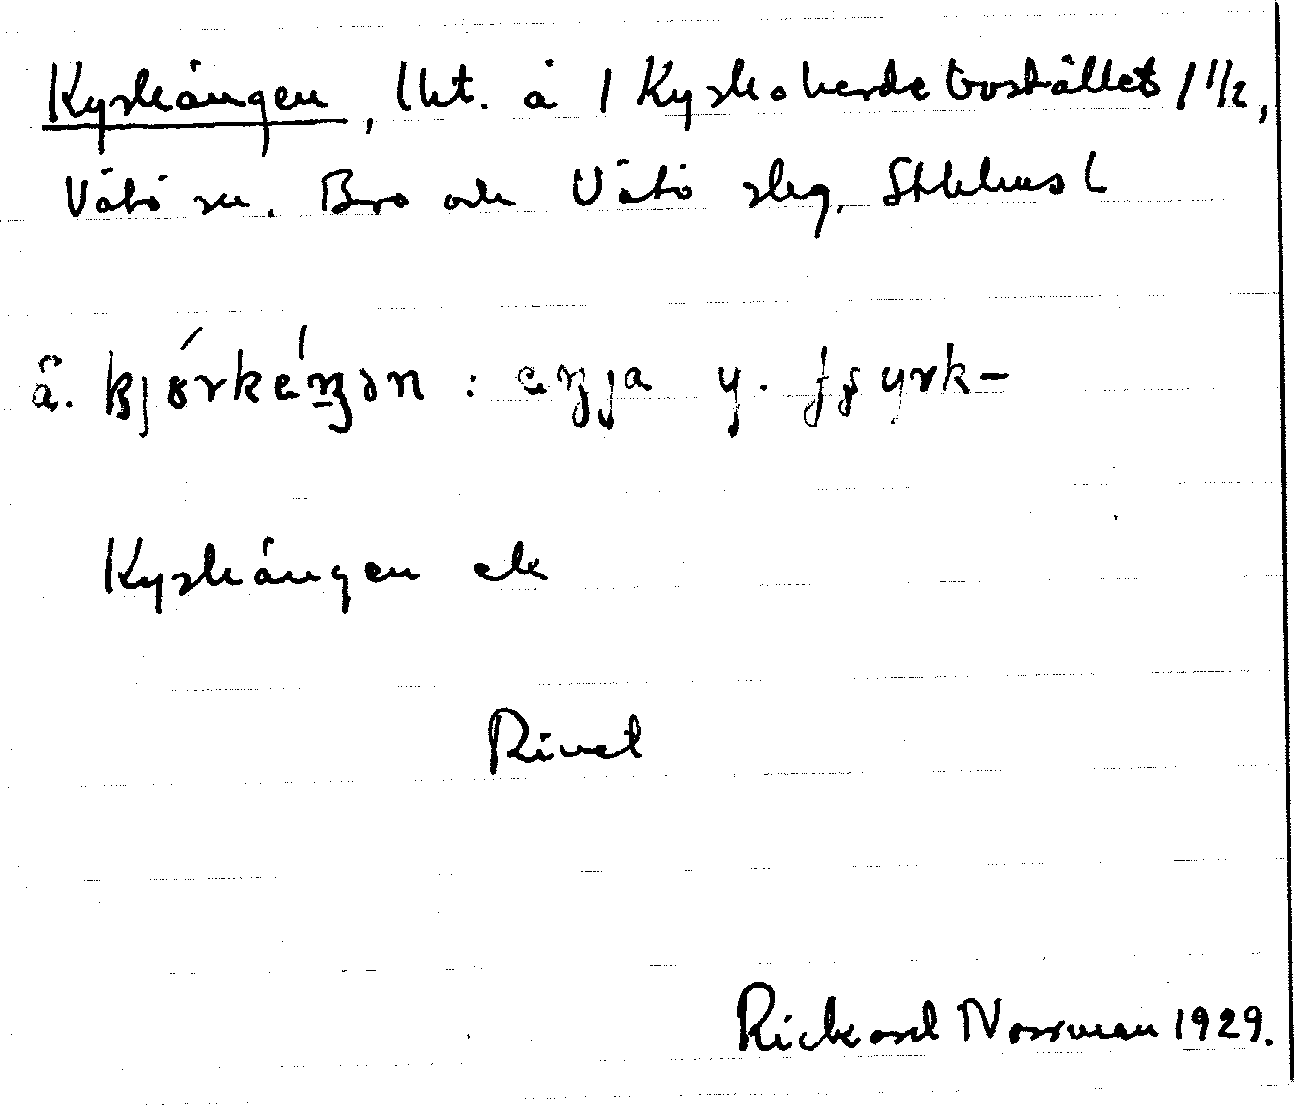 Kyrkängen, lht. å 1 Kyrkoherdebostället 1 1/2,
Vätö sn. Bro och Vätö slg. Sthlms l
ä. kjörkéŋən : eŋja y. yrk-
Kyrkängen ek
Rickard Norrman 1929.